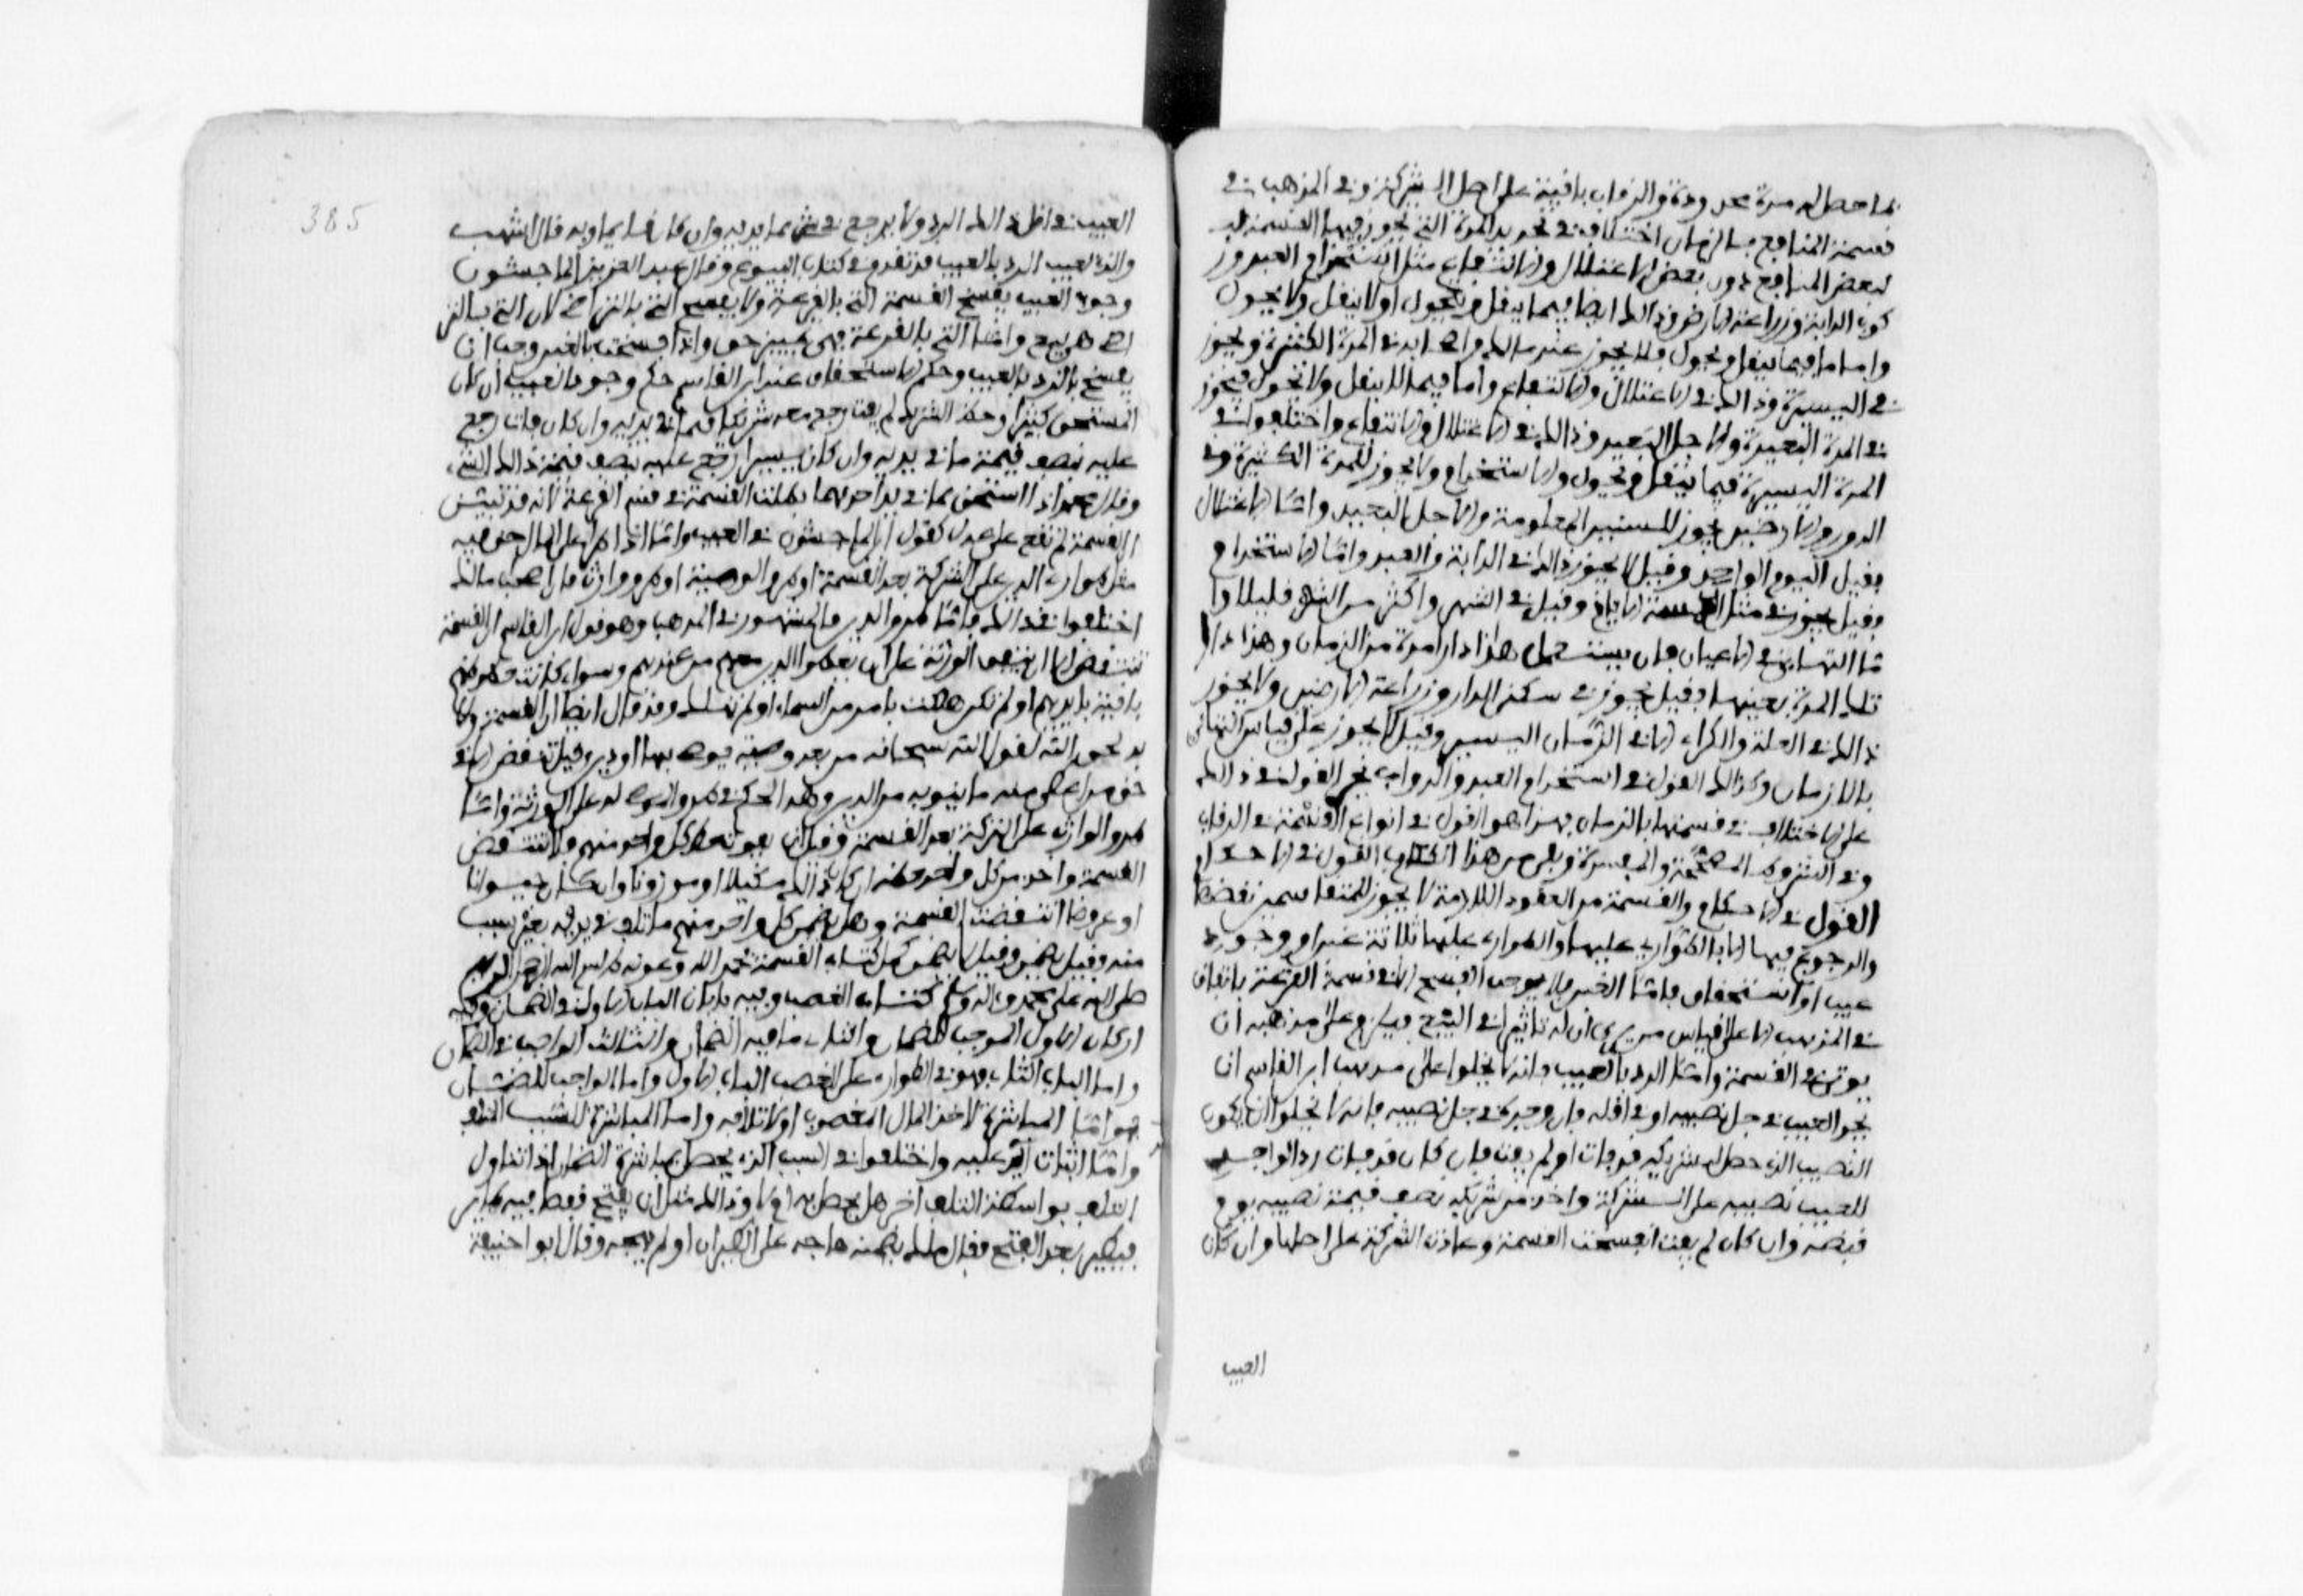 بما حصل له مدة محدودة والرقاب باقية على اصل الشركة وفي المذهب في
قسمة المنافع بالزمان اختلاف في تحديد المدة التي تجوز فيها القسمة
لبعض المنافع دون بعض للاغتلال والانتفاع مثل استخدام العبد ور
كوب الدابة وزراعة الارض وذالك ايضا فيما ينقل ويحول او لا ينقل ولا يحول
واما ما فيما ينقل ويحول فلا يجوز عند مالك واصحابه في المدة الكثيرة ويجوز
في اليسيرة وذالك في الاغتلال والانتفاع واما فيما لا ينقل ولا يحول فيجوز
في المدة البعيدة والاجل البعيد وذالك في الاغتلال والانتفاع واختلفوا في
المدة اليسيرة فيما ينقل ويحول والاستخدام ولا يجوز للمدة الكثيرة وفي
الدور والارضين يجوز للسنين المعلومة والاجل البعيد واما الاغتلال
فقيل اليوم الواحد وقيل لا يجوز ذالك في الدابة والعبد واما الاستخدام
فقيل يجوز في مثل الخمسة الايام وقيل في الشهر واكثر من الشهر قليلا وا
ما التهايؤ في الاعيان فان يستعمل هذا دارا مدة من الزمان وهذا دارا
تلك المدة بعينها فقيل يجوز في سكنى الدار وزراعة الارضين ولا يجوز
ذالك في الغلة والكراء الا في الزمان اليسير وقيل لا يجوز على قياس التهايؤ
بالازمان وكذالك القول في استخدام العبد والدواب يجري القول في ذالك
على الاختلاف في قسمتها بالزمان فهذا هو القول في انواع القسمة في الرقاب
وفي الشروط المصححة والمفسدة وبقي من هذا الكتاب القول في الاحكام
القول في الاحكام والقسمة من العقود اللازمة لا يجوز للمتقاسمين نقضها
والرجوع فيها الا بالطواري عليها والطواري عليها ثلاثة غبن او وجود
عيب او استحقاق فاما الغبن فلا يوجب الفسخ الا في قسمة القرعة باتفاق
في المذهب الا على قياس من يرى ان له تاثيرا في البيع فيلزم على مذهبه ان
يوثر في القسمة واما الرد بالعيب فانه لا يخلو على مذهب ابن القاسم ان
يجد العيب في جل نصيبه او في اقله فان وجده في جل نصيبه فانه لا يخلو ان يكون
النصيب الذي حصل لشريكه قد فات او لم يفت فان كان قد فات رد الواجد
للعيب نصيبه على الشركة واخذ من شريكه نصف قيمة نصيبه يوم
قبضه وان كان لم يفت انفسخت القسمة وعادت الشركة على اصلها وان كان
العيب
385
العيب في اقل ذالك الرد ولا يرجع في شي مما بيديه وان كان قال اشهب
والذي يعيب الرد بالعيب قد تقدم في كتاب البيوع وقال عبد العزيز الماجشون
وجود العيب يفسخ القسمة التي بالقرعة ولا يفسخ التي بالتراضي لان التي بالترا
ضي هي بيع واما التي بالقرعة فهي تمييز حق واذا فسخت بالغبن وجب ان
يفسخ بالرد بالعيب وحكم الاستحقاق عند ابن القاسم حكم وجود العيب ان كان
المستحق كثيرا وحظ الشريك لم يفت رجع معه شريكا فيما في يديه وان كان فات رجع
عليه بنصف قيمة ما في يديه وان كان يسيرا رجع عليه بنصف قيمة ذالك الشيء
وقال محمد اذا استحق ما في يد احدهما بطلت القسمة في قسم القرعة لانه قد تبين
القسمة لم تقع على عدل كقول ابن الماجشون في العيب واما اذا طرا على المال حق فيه
مثل طوارئ الدين على الشركة بعد القسمة او طرو الوصية او طرو وارث فان اصحاب مالك
اختلفوا في ذالك فاما طرو الدين فالمشهور في المذهب وهو قول ابن القاسم ان القسمة
تنتقض الا ان يتفق الورثة على ان يعطوا الدين معهم من عندهم وسواء كانت حظوظهم
باقية بايديهم او لم تكن هلكت بامر من السماء او لم تهلك وقد قال ايضا ان القسمة
بد لحق الله لقول الله سبحانه من بعد وصية يوصى بها او دين وقيل تنتقض الا في
حق من اعطى منه ما ينوبه من الدين وهذا الحكم في طرو الموصى له على الورثة واما
طرو الوارث على التركة بعد القسمة وقبل ان يفوت حظ كل واحد منهم فلا تنتقض
القسمة واخذ من كل واحد حظه ان كان ذالك مكيلا او موزونا وان كان حيوانا
او عروضا انتقضت القسمة وهل يضمن كل واحد منهم ما تلف في يديه بغير سبب
منه وقيل يضمن وقيل لا يضمن كمل كتاب القسمة بحمد الله وعونه بسم الله الرحمن الرحيم
صلى الله على محمد واله وسلم كتاب الغصب وفيه بابان الباب الاول في الضمان وفيه
اركان الاول الموجب للضمان والثاني ما فيه الضمان والثالث الواجب في الضمان
واما الباب الثاني فهو في الطوارئ على الغصب الباب الاول واما الواجب للضمان
فهو اما المباشرة لاخذ المال المغصوب او لاتلافه واما المباشرة للسبب المتلف
واما اثبات اليد عليه واختلفوا في السبب الذي يحصل بمباشرته الضمان اذا تناول
التلف بواسطة سبب اخر هل يحصل به ام لا وذالك مثل ان يفتح قفصا فيه طائر
فيطير بعد الفتح فقال مالك يضمنه هاجه على الطيران او لم يهجه وقال ابو حنيفة